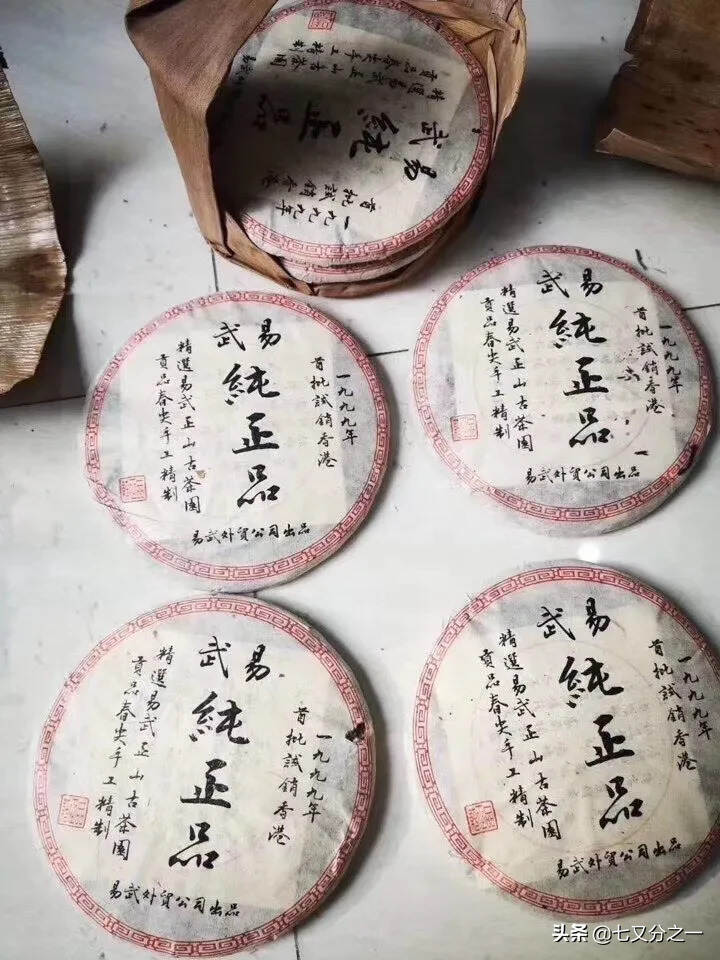 一九九九年
首批試銷香港
易武
純正品
精選易武正山古茶園
貢品春尖手工精制
一九九九年
首批試銷香港
易武
純正品
精選易武正山古茶園
貢品春尖手工精制
易武外貿公司出品
一九九九年
首批試銷香港
易武
純正品
精選易武正山古茶園
貢品春尖手工精制
易武外貿公司出品
一九九九年
首批試銷香港
易武
純正品
精選易武正山古茶園
貢品春尖手工精制
易武外貿公司出品
一九九九年
首批試銷香港
易武
純正品
精選易武正山古茶園
貢品春尖手工精制
易武外貿公司出品
头条 @七又分之一